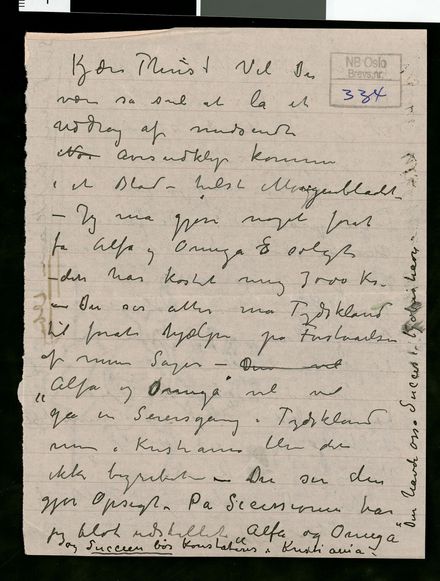 NB Oslo
Brevs.nr.
334
Kjære Thiis! Vil De
være så snil at la et
uddrag af medsendte
avisudklip komme
i et Blad – helst Morgenbladet
– Jeg må gjøre noget for at
få Alfa og Omega solgt
– den har kostet mig 3000 Kr.
– De ser atter må Tydskland
til for at hjælpe på Forståelsen
af mine Sager –
„Alfa og Omega" vil vel
gå en Seiersgang i Tydskland
men i Kristiania blir den
ikke begrebet – De ser den
gjør Opsigt. På Secessionen har
jeg blot udstillet „Alfa og Omega"
og Succeen bør konstateres i Kristiania.
Den havde også Succes i Kjøbenhavn –